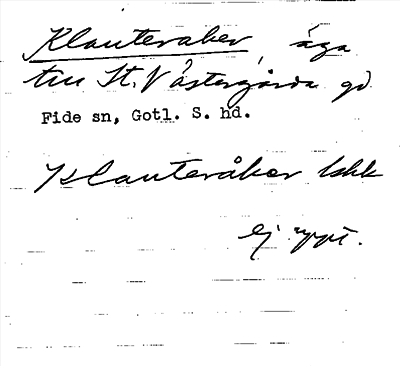 Klauteraker, äga
till St. Västergårda gd
Fide sn, Gotl. S. hd.
Klauteråker
ej uppt.